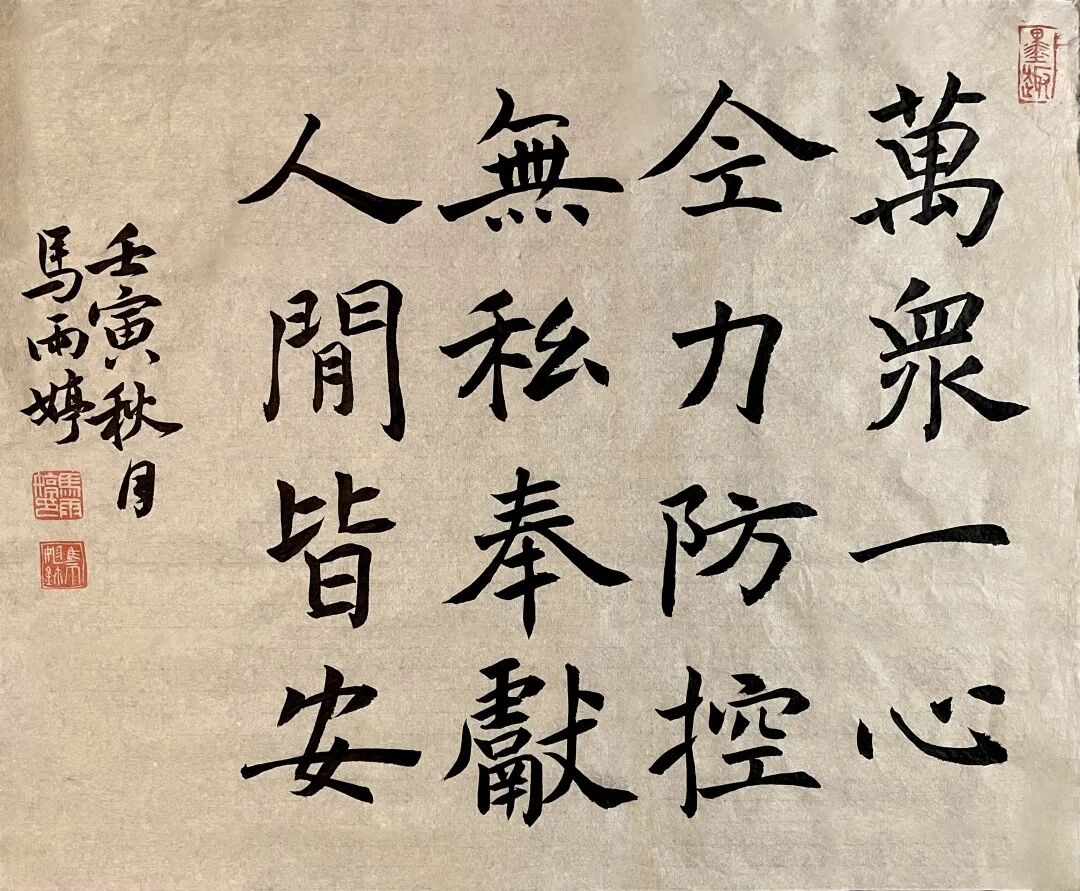 墨趣
萬眾一心
全力防控
無私奉獻
人閒皆安
壬寅秋月
馬雨婷
馬雨婷印